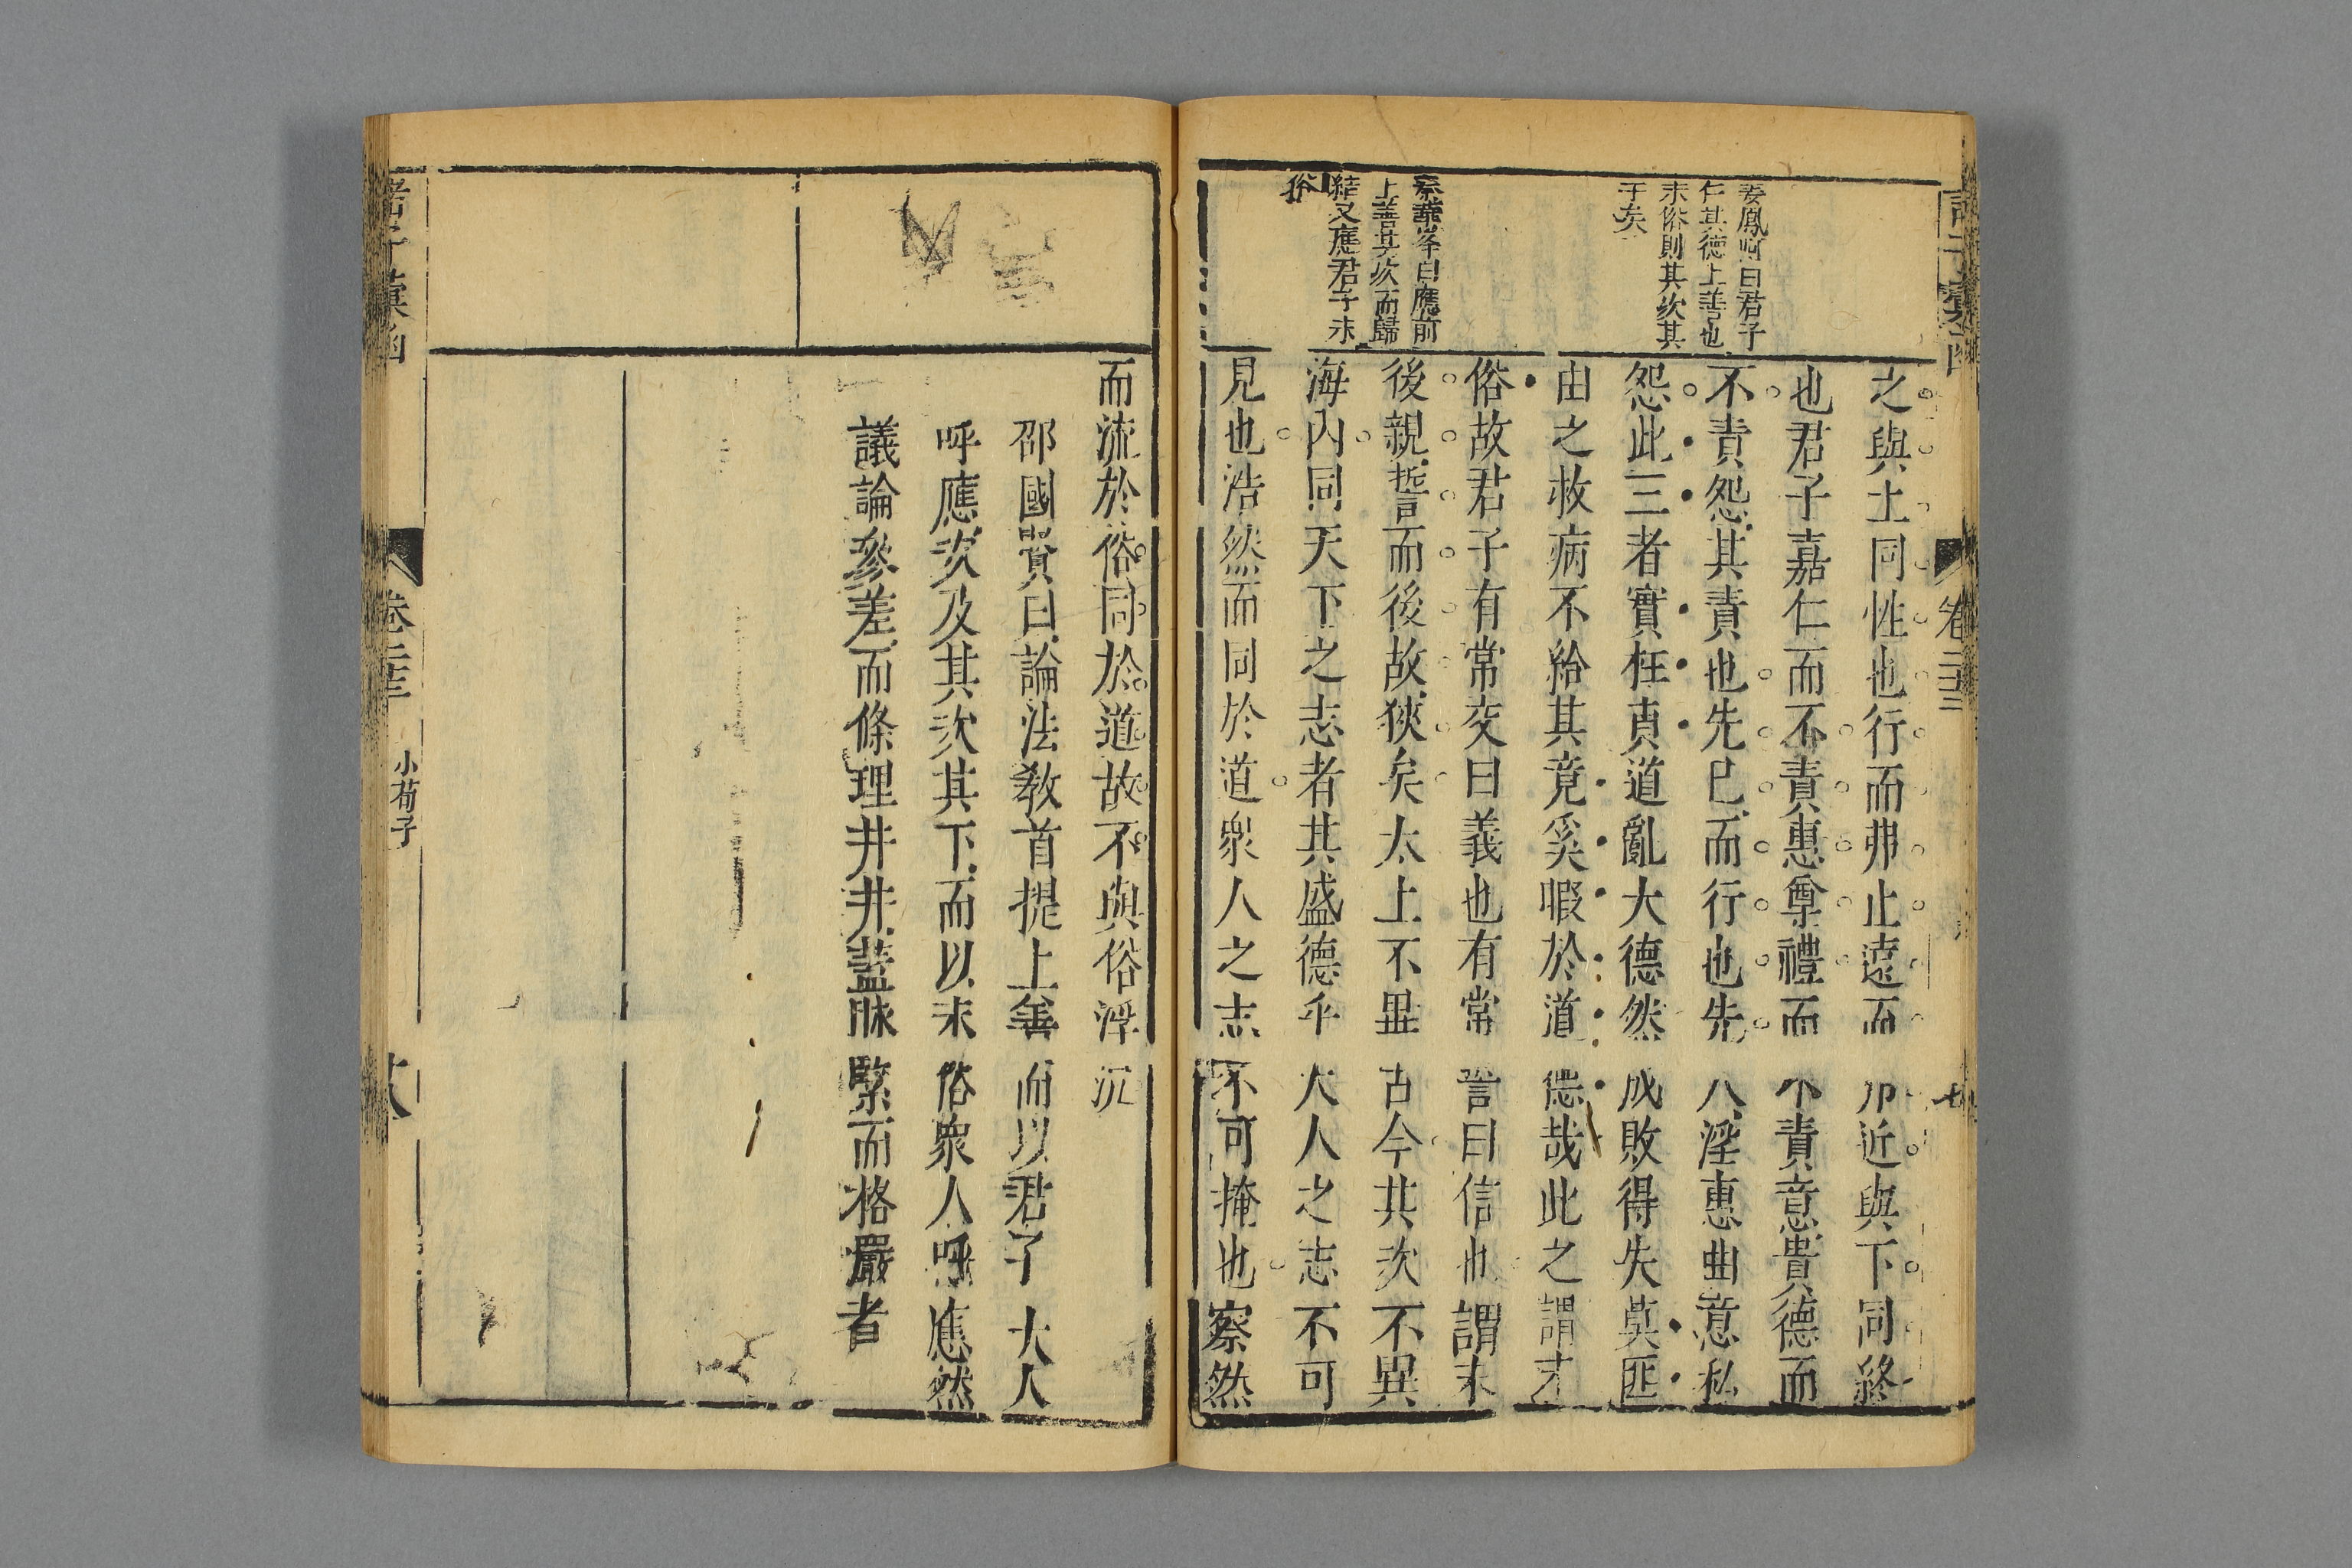 姜鳳阿曰君子
仁其德上善也
末俗則其次其
于矣
秦華峯曰應前
上善其次而歸
結又應君子末
俗
之與土同性也行而弗止遠而 近與下同終
也君子嘉仁而不責惠尊禮而不責意貴德而
不責怨其責也先已而行也先人淫惠曲意私
怨此三者實枉貞道亂大德然成敗得失莫匪
由之救病不給其竟奚暇於道德哉此之謂末
俗故君子有常交曰義也有常誓曰信也謂末
後親誓而後故狹矣太上不異古今其次不異
海內同天下之志者其盛德乎大人之志不可
見也浩然而同於道衆人之志不可掩也察然
卷二十三
而流於俗同於道故不與俗浮沉
邵國賢曰論法教首提上善而以君子大人
呼應次及其次其下而以末俗衆人呼應然
議論參差而條理井井蓋脉緊而格嚴者
諸子彙函
卷二十三
小荀子
十八